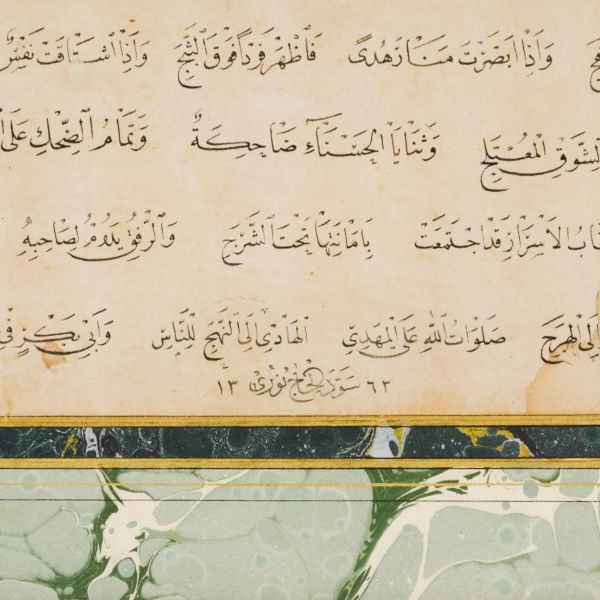 وَاِذَا اَبْصَرْتَ مَنَارَ هُدًى فَاظْهَرْ فَرْدًا فَوْقَ الثَّبَجِ وَاِذَا اشْتَاقَتْ نَفْسٌ
الشَّوْقِ الْمُعْتَلِجِ وَثَنَايَا الْحَسْنَاءِ ضَاحِكَةٌ وَتَمَامُ الضِّحْكِ عَلَى
الْاَسْرَارِ قَدِ اجْتَمَعَتْ بِاَمَانَتِهَا تَحْتَ الشَّرَجِ وَالرِّفْقُ يَدُومُ لِصَاحِبِهِ
اِلَى الْهَرَجِ صَلَوَاتُ اللّٰهِ عَلَى الْمَهْدِيِّ الْهَادِي اِلَى النَّهْجِ لِلنَّاسِ وَاَبِي بَكْرٍ فِي
٦٣ سوّده الحاج نوري ١٣